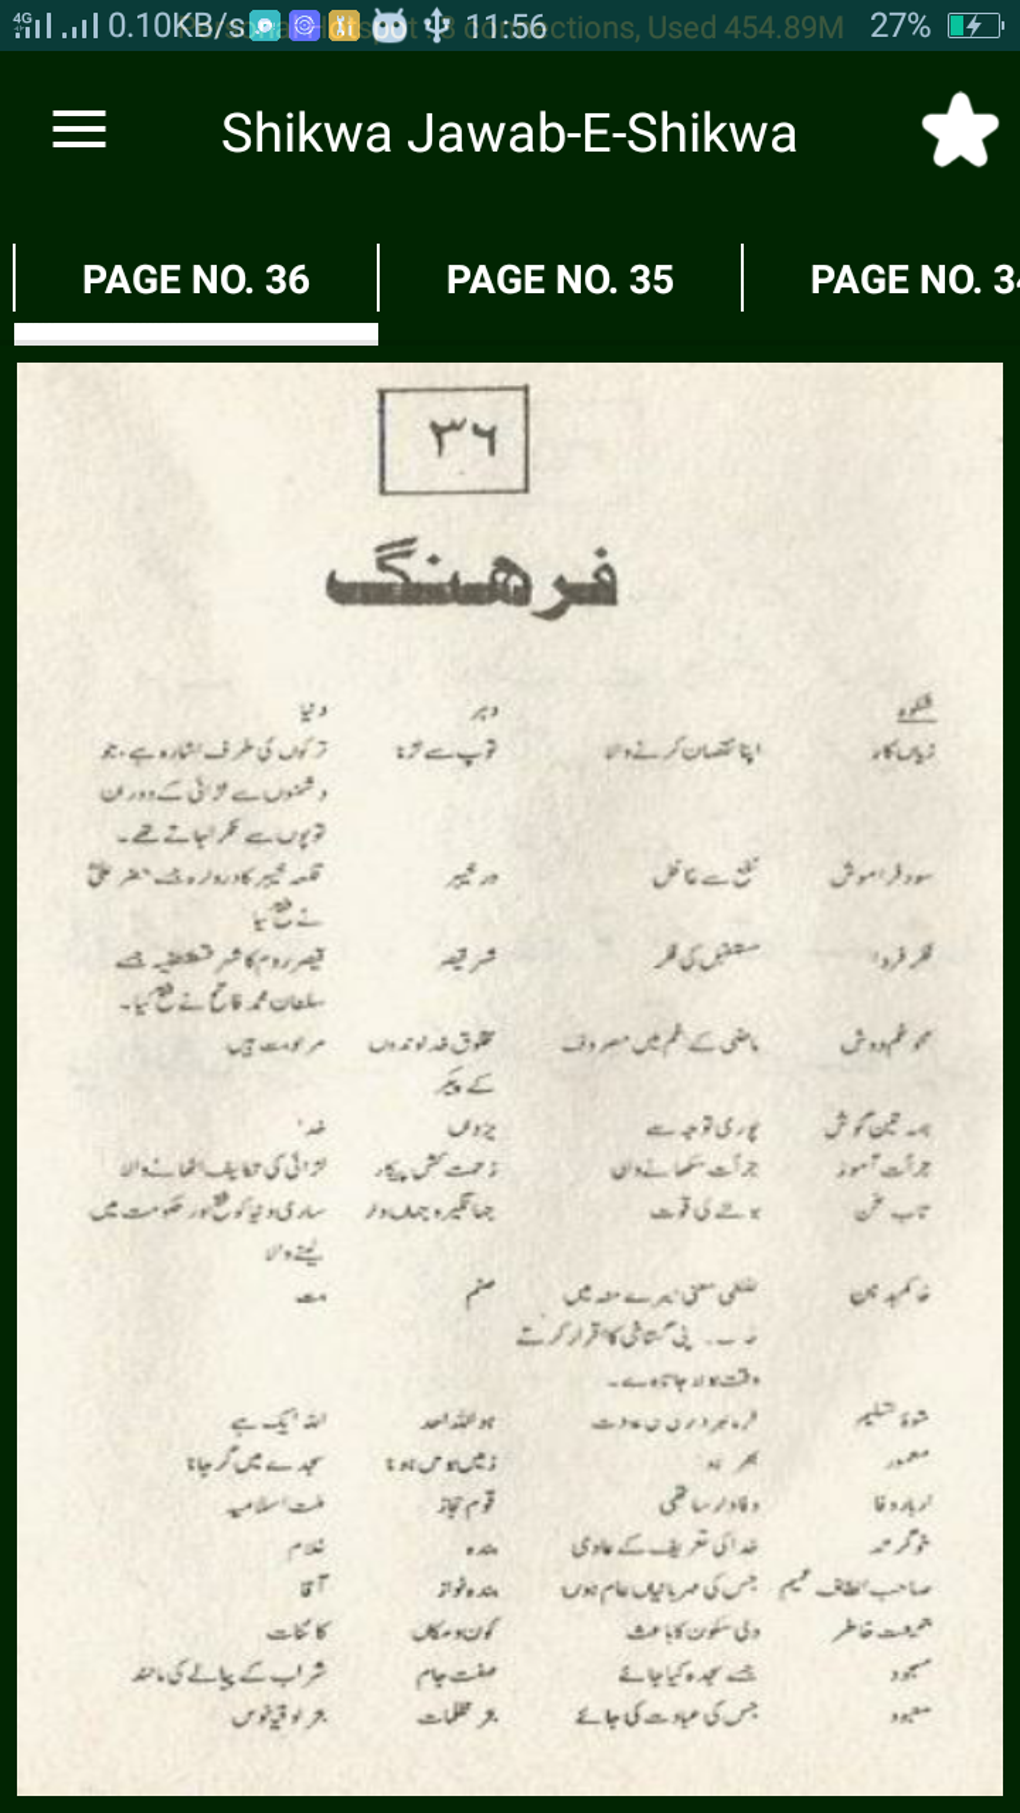 0.10KB/s 11:56 27%
Shikwa Jawab-E-Shikwa
PAGE NO. 36 PAGE NO. 35 PAGE NO. 34
۳۶
فرهنگ
شکوہ دہر دنیا
زیاں کار اپنا نقصان کرنے والا توپ سے لڑنا ترکوں کی طرف اشارہ ہے، جو
دشمنوں سے لڑائی کے دوران
توپوں سے ٹکرا جاتے تھے۔
سود فراموش نفع سے غافل در خیبر قلعہ خیبر کا دروازہ جسے حضرت علیؓ
نے فتح کیا
فکر فردا مستقبل کی فکر شہر قیصر قیصر روم کا شہر قسطنطنیہ جسے
سلطان محمد فاتح نے فتح کیا۔
محو غم دوش ماضی کے غم میں مصروف مخلوق خداوندوں
کے پیکر
ہمہ تن گوش پوری توجہ سے یزداں خدا
جرأت آموز جرأت سکھانے والی زحمت کش پیکار لڑائی کی تکالیف اٹھانے والا
تاب سخن بولنے کی قوت جہانگیر و جہاں دار ساری دنیا کو فتح اور حکومت میں
لینے والا
خاکم بدہن لفظی معنی میرے منہ میں صنم بت
اپنی گستاخی کا اقرار کرتے
وقت بولا جاتا ہے۔
شیوۂ تسلیم ھو اللہ احد اللہ ایک ہے
زمیں بوس ہونا سجدے میں گر جانا
ارباب وفا وفادار ساتھی قوم حجاز ملت اسلامیہ
خوگر حمد خدا کی تعریف کے عادی بندہ غلام
صاحب الطاف عمیم جس کی مہربانیاں عام ہوں بندہ نواز آقا
جمعیت خاطر دلی سکون کا باعث کون و مکاں کائنات
مسجود جسے سجدہ کیا جائے صفت جام شراب کے پیالے کی مانند
معبود جس کی عبادت کی جائے بحر ظلمات بحر اوقیانوس